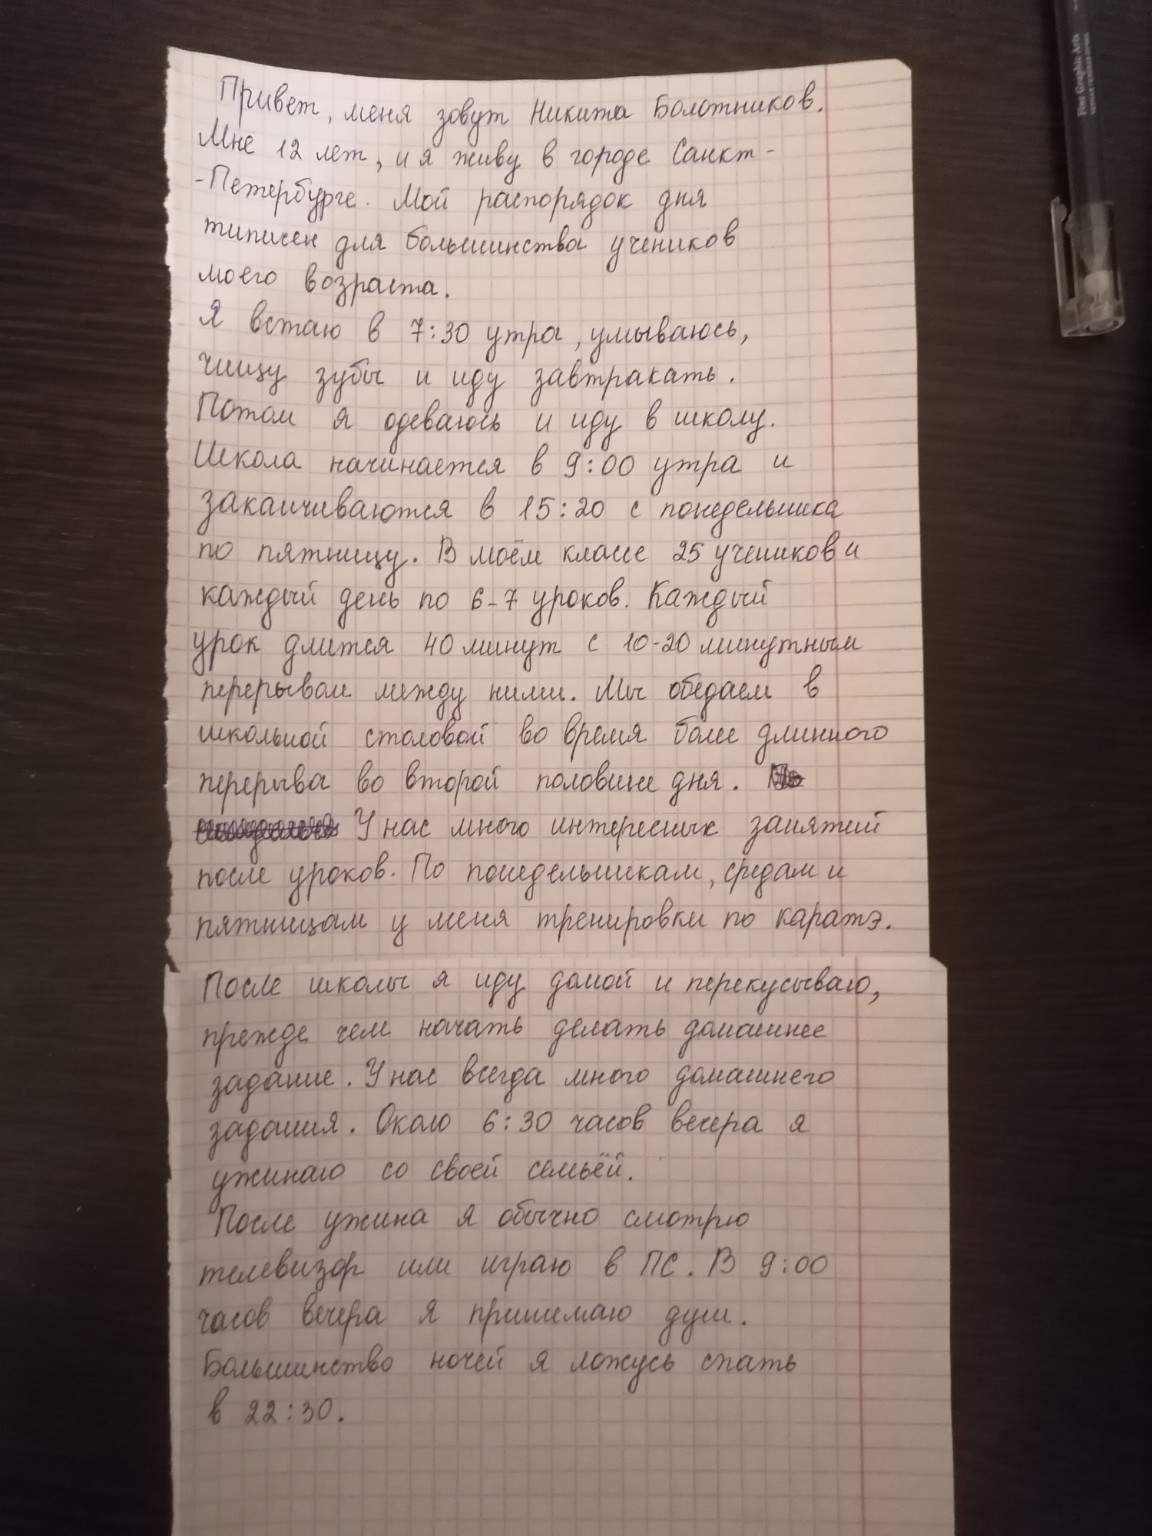 Привет, меня зовут Никита Болотников.
Мне 12 лет, и я живу в городе Санкт-
-Петербурге. Мой распорядок дня
типичен для большинства учеников
моего возраста.
Я встаю в 7:30 утра, умываюсь,
чищу зубы и иду завтракать.
Потом я одеваюсь и иду в школу.
Школа начинается в 9:00 утра и
заканчиваются в 15:20 с понедельника
по пятницу. В моём классе 25 учеников и
каждый день по 6-7 уроков. Каждый
урок длится 40 минут с 10-20 минутным
перерывом между ними. Мы обедаем в
школьной столовой во время более длинного
перерыва во второй половине дня.
У нас много интересных занятий
после уроков. По понедельникам, средам и
пятницам у меня тренировки по каратэ.
После школы я иду домой и перекусываю,
прежде чем начать делать домашнее
задание. У нас всегда много домашнего
задания. Около 6:30 часов вечера я
ужинаю со своей семьёй.
После ужина я обычно смотрю
телевизор или играю в ПС. В 9:00
часов вечера я принимаю душ.
Большинство ночей я ложусь спать
в 22:30.